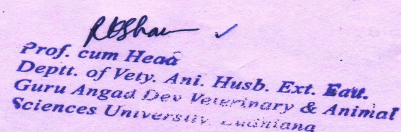 Prof. cum Head
Deptt. of Vety. Ani. Husb. Ext. Edu.
Guru Angad Dev Veterinary & Animal
Sciences University, Ludhiana